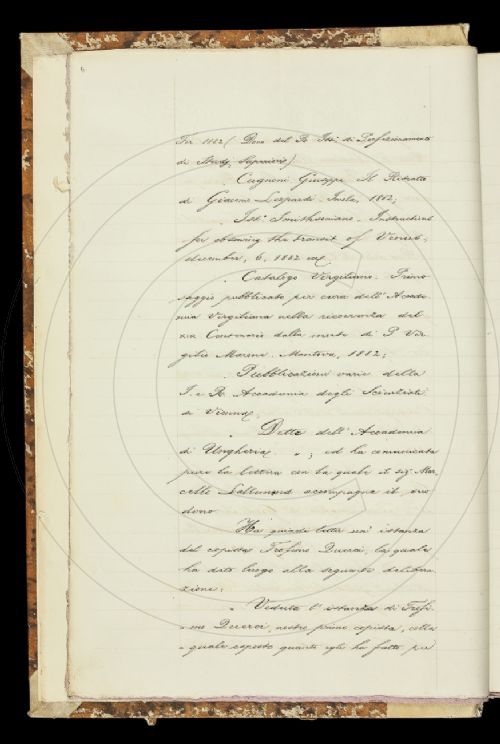 Fir. 1882 (Dono del R. Ist. di Perfezionamento
di Studj Superiori)
Cugnoni Giuseppe Il Ritratto
di Giacomo Leopardi. Imola, 1882;
Ist. Smithsoniano. Instructions
for observing the transit of Venus,
december, 6, 1882
Catalogo Vergiliano. Primo
saggio pubblicato per cura dell'Accade-
mia Virgiliana nella ricorrenza del
XIX Centenario dalla morte di P. Vir
gilio Marone. Mantova, 1882;
Pubblicazioni varie della
I. e R. Accademia degli Scienziati
di Vienna;
Dette dell'Accademia
di Ungheria. ; ed ha comunicata
pure la lettera con la quale il sig. Mar.
cello accompagna il suo
dono.
Ha quindi letta un'istanza
del copista Trofimo Querci, la quale
ha dato luogo alla seguente delibera-
zione:
" Veduta l'istanza di Trofi-
" mo Querci, nostro primo copista, colla
" quale esposto quanto egli ha fatto per